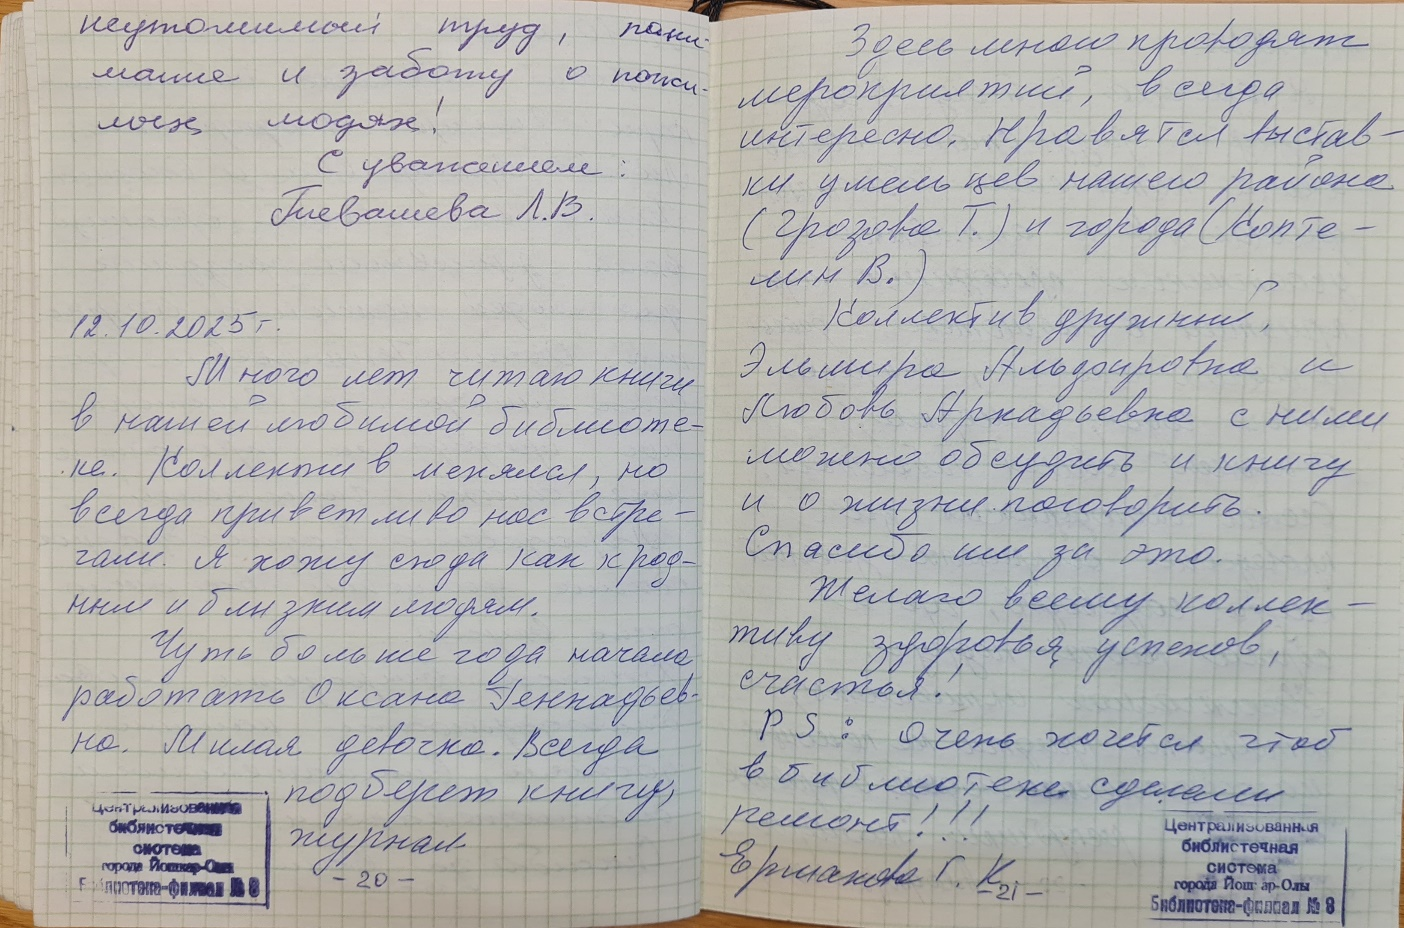 неутомимый труд, пони-
мание и заботу о пожи-
лых людях!
С уважением:
Л.В.
12.10.2025 г.
Много лет читаю книги
в нашей любимой библиоте-
ке. Коллектив менялся, но
всегда приветливо нас встре-
чали. Я хожу сюда как к род-
ным и близким людям.
Чуть больше года начала
работать Оксана Геннадьев-
на. Милая девочка. Всегда
подберет книгу,
журнал
- 20 -
Централизованная
библиотечная
система
города Йошкар-Олы
Библиотека-филиал № 8
Здесь много проводят
мероприятий, всегда
интересно. Нравятся выстав-
ки умельцев нашего района
(Грозова Т.) и города (Копте-
лин В.)
Коллектив дружный,
Эльмира и
Любовь Аркадьевна с ними
можно обсудить и книгу
и о жизни поговорить.
Спасибо им за это.
Желаю всему коллек-
тиву здоровья, успехов,
счастья!
PS: Очень хочется чтоб
в библиотеке сделали
ремонт!!!
Ермакова Г. К.
- 21 -
Централизованная
библиотечная
система
города Йошкар-Олы
Библиотека-филиал № 8